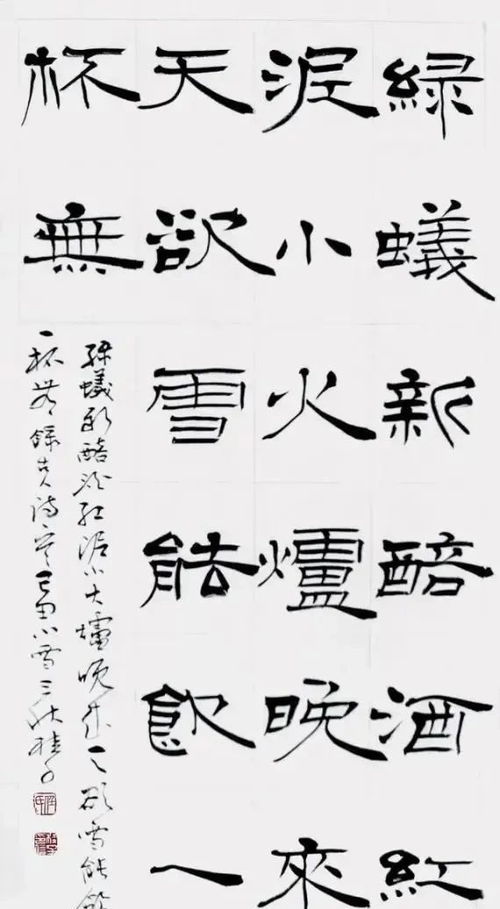 綠蟻新醅酒紅
泥小火爐晚來
天欲雪能飲一
杯無
綠蟻新醅酒紅泥小火爐晚來天欲雪能飲
一杯無錄古人詩小雪三秋桂子